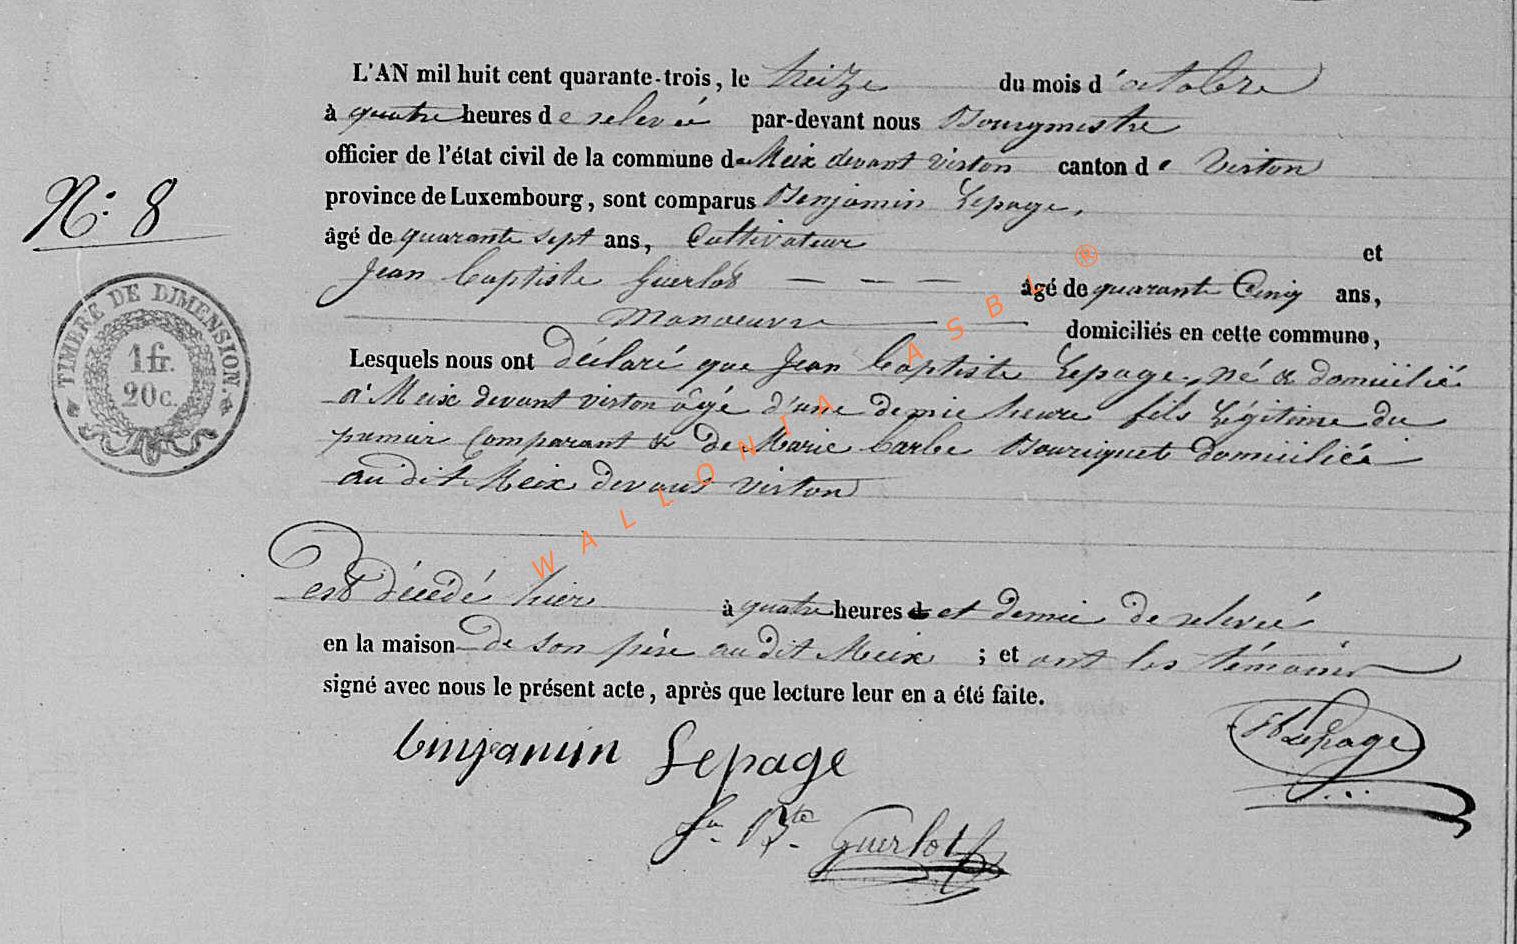 L'AN mil huit cent quarante-trois, le treize du mois d'octobre
à quatre heures de relevée par-devant nous Bourgmestre
officier de l'état civil de la commune de Meix devant virton canton de Virton
province de Luxembourg, sont comparus Benjamin Lepage,
âgé de quarante sept ans, Cultivateur et
Jean Baptiste Guerlot — — — âgé de quarante Cinq ans,
manoeuvre — — domiciliés en cette commune,
Lesquels nous ont déclaré que Jean Baptiste Lepage, né & domicilié
à Meix devant virton âgé d'une demie heure fils Légitime du
premier Comparant & de Marie barbe Bouriquet domiciliée
au dit Meix devant virton
est décédé hier à quatre heures d et demie de relevée
en la maison de son père au dit Meix ; et ont les témoins
signé avec nous le présent acte, après que lecture leur en a été faite.
N°. 8
TIMBRE DE DIMENSION.
1 fr.
20 c.
benjamin Lepage
Lepage
Jn. Bte. Guerlot
WALLONIA ASBL ®